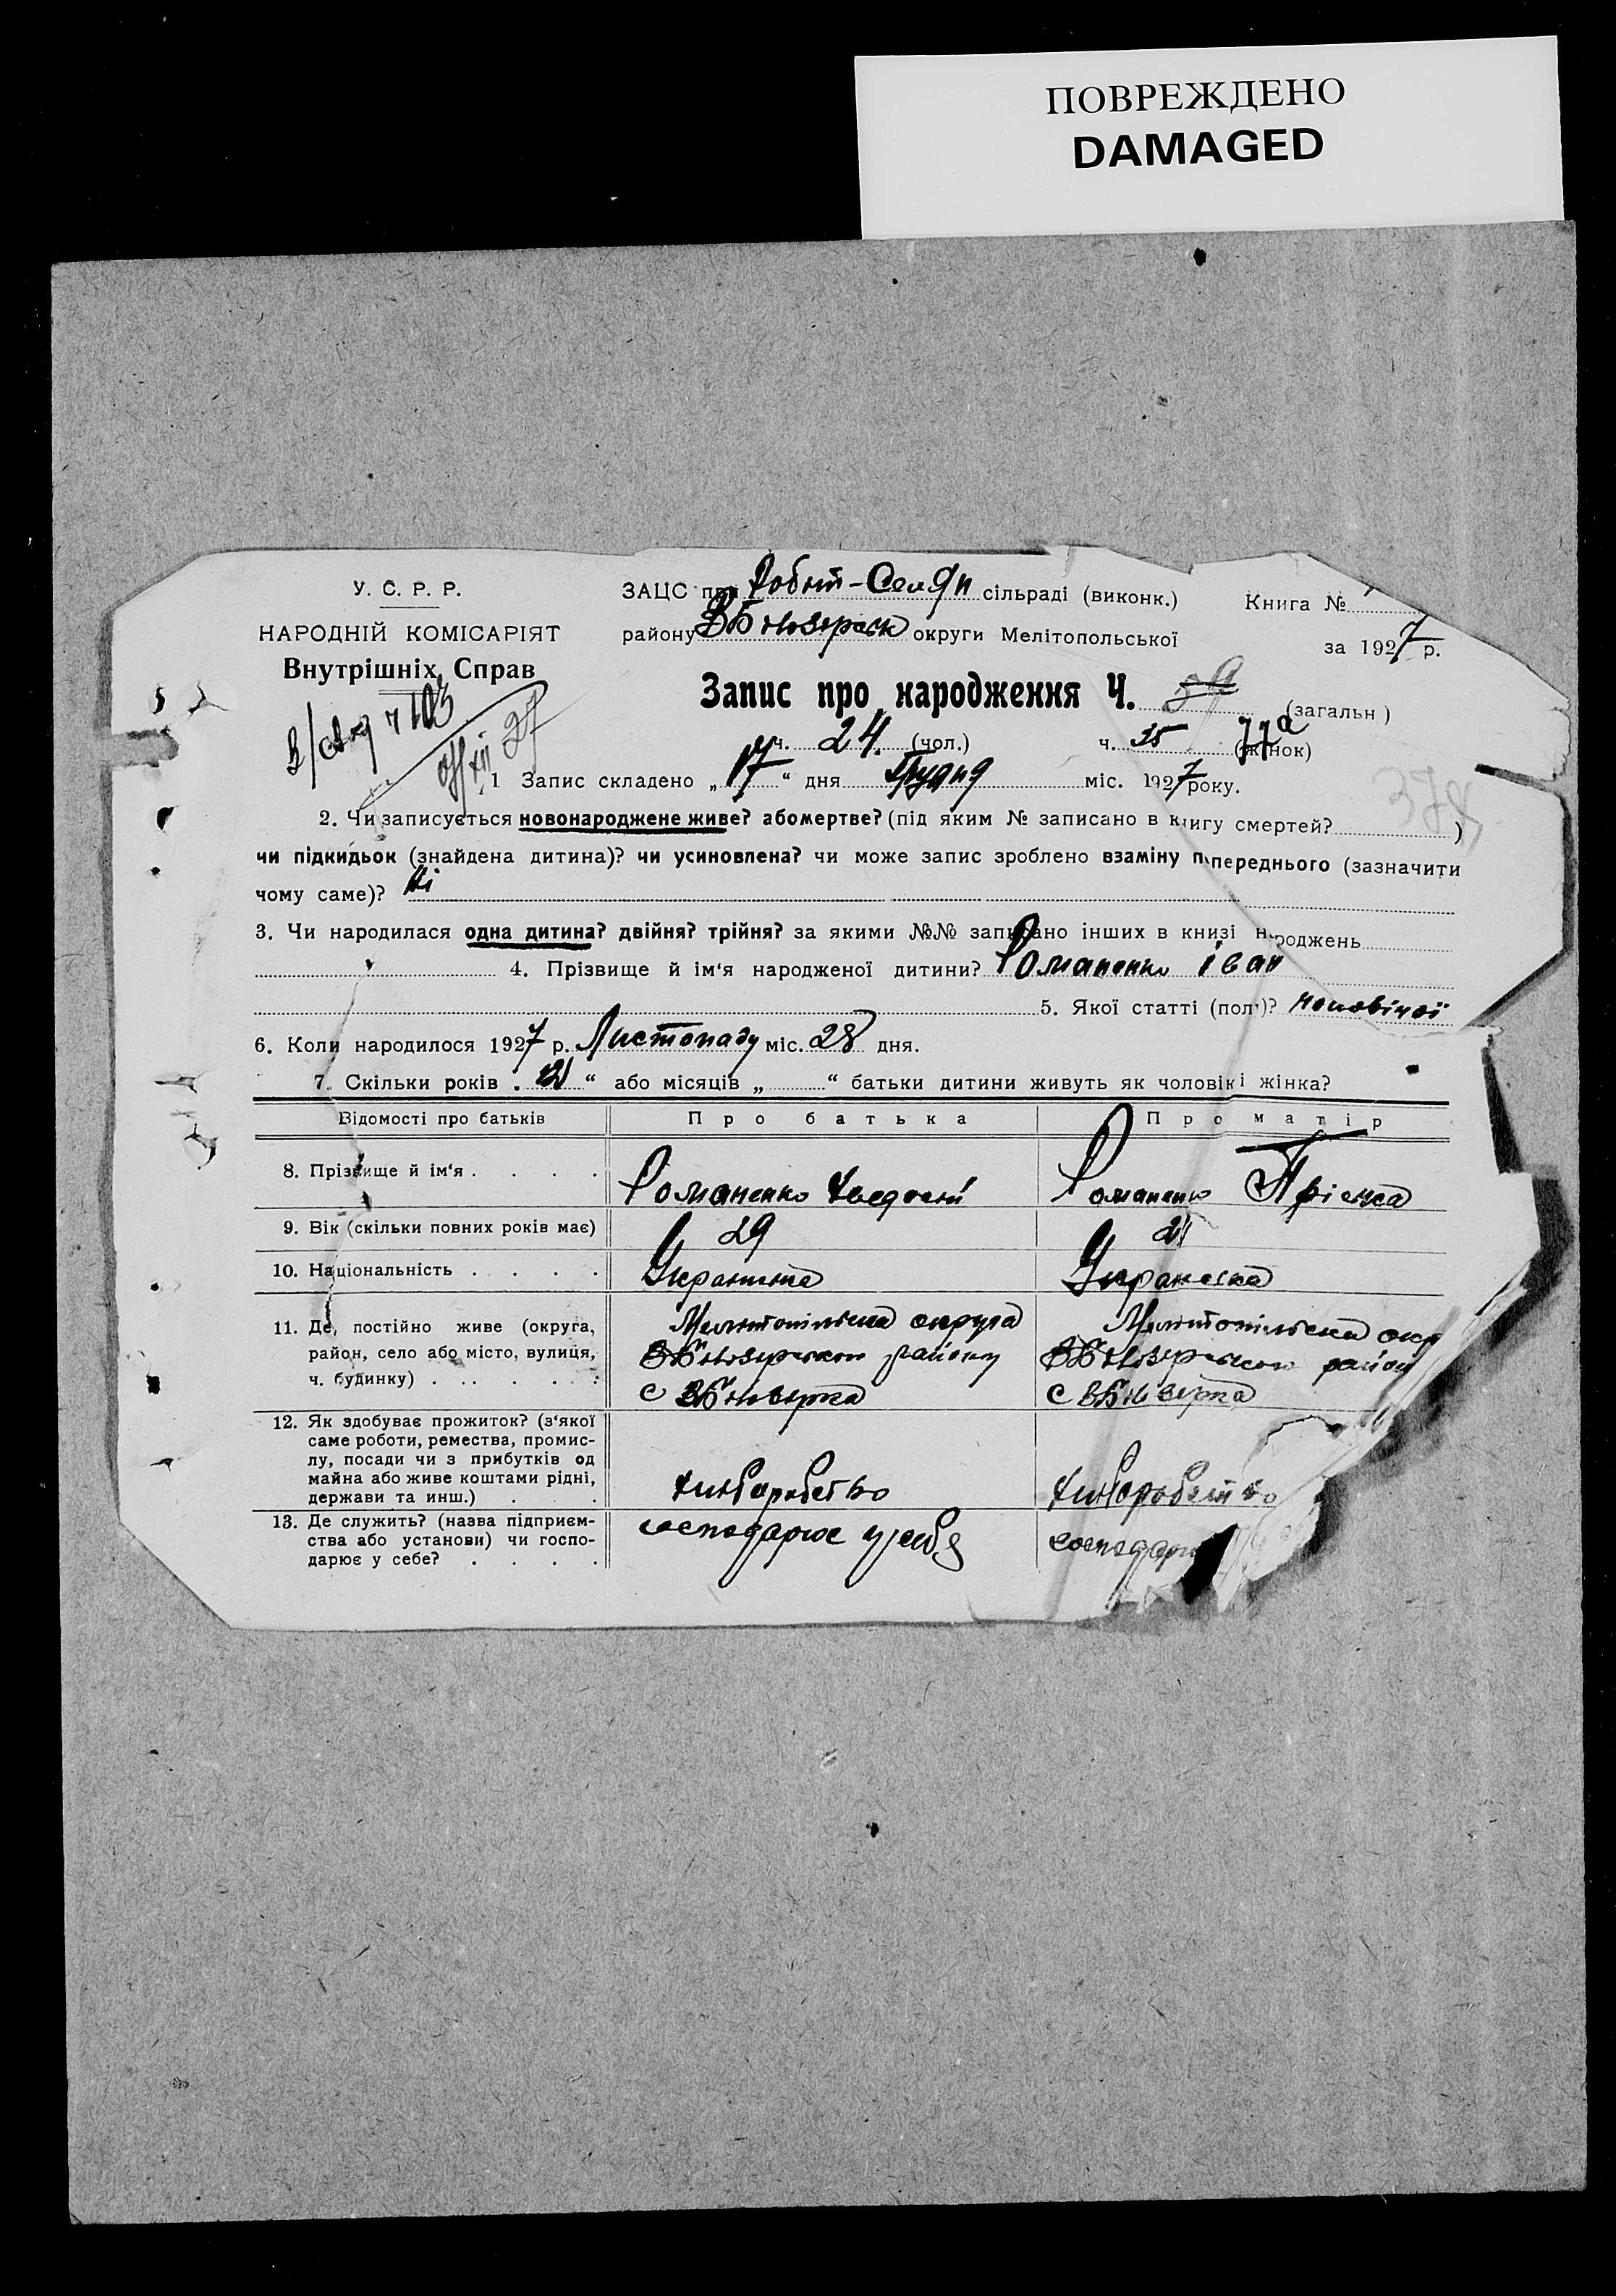 ПОВРЕЖДЕНО
DAMAGED
У. С. Р. Р.
НАРОДНІЙ КОМІСАРІЯТ
Внутрішніх Справ
ЗАЦС при Робот-Селян сільраді (виконк.)
Книга №
району ВБілозерськ округи Мелітопольської
за 1927 р.
Запис про народження Ч. 59 (загальн)
ч. 24 (чол.) ч. 35 (жінок) 77а
1 Запис складено „17“ дня Грудня міс. 1927 року.
378
2. Чи записується новонароджене живе? або мертве? (під яким № записано в книгу смертей? )
чи підкидьок (знайдена дитина)? чи усиновлена? чи може запис зроблено взаміну попереднього (зазначити
чому саме)? Ні
3. Чи народилася одна дитина? двійня? трійня? за якими №№ записано інших в книзі народжень
4. Прізвище й ім‘я народженої дитини? Романенко Іван
5. Якої статті (пол)? чоловічої
6. Коли народилося 1927 р. Листопаду міс. 28 дня.
7. Скільки років “ або місяців „ “ батьки дитини живуть як чоловік і жінка?
Відомості про батьків Про батька Про матір
8. Прізвище й ім‘я . . . . Романенко Романенко Пріська
9. Вік (скільки повних років має) 29
10. Національність . . . . Українець Українська
11. Де, постійно живе (округа, район, село або місто, вулиця, ч. будинку) . . . . .
Мелітопільська округа ВБілозерського району с ВБілозерка
Мелітопільська окр ВБілозерського район с ВБілозерка
12. Як здобуває прожиток? (з‘якої саме роботи, ремества, промислу, посади чи з прибутків од майна або живе коштами рідні, держави та инш.) . .
хліборобство хліборобство
13. Де служить? (назва підприємства або установи) чи господарює у себе? . . . .
господарює у себя господарю